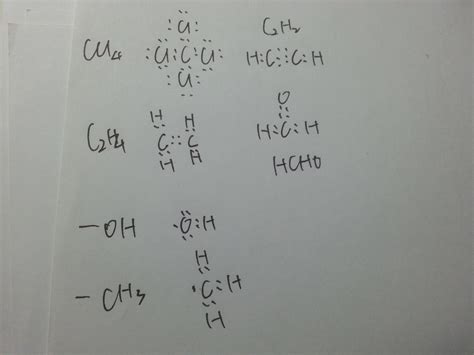 CCl4 :Cl:C:Cl: Cl Cl
C2H2 H:C⋮⋮C:H
C2H4 H H C::C H H
O H:C:H
HCHO
—OH ·O:H
—CH3 H ·C:H H